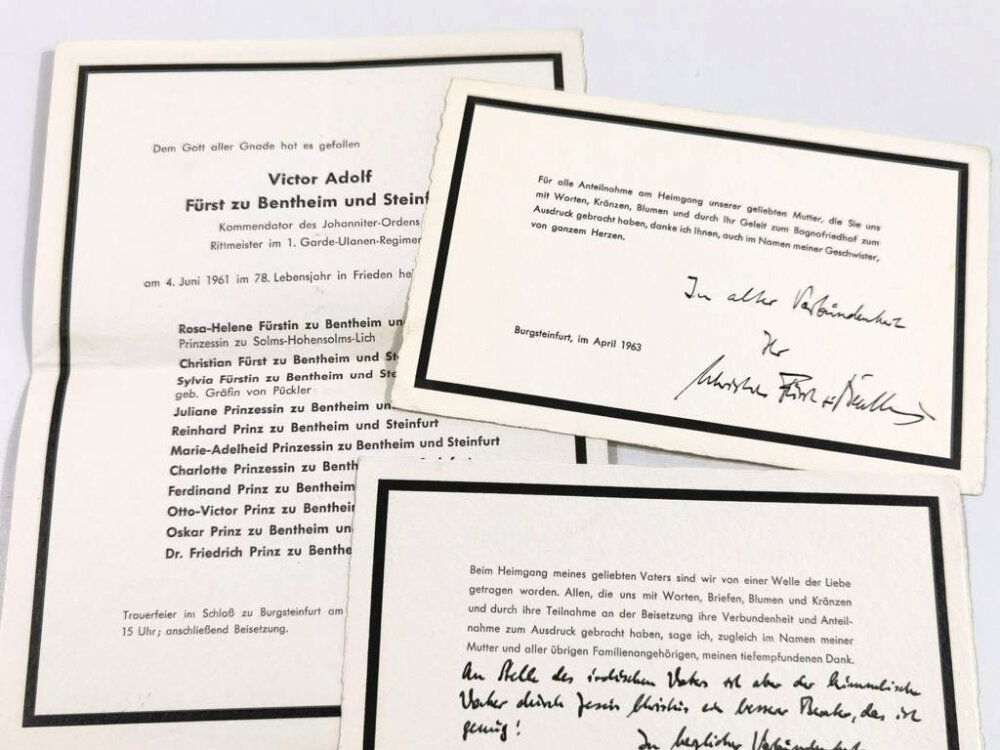 Dem Gott aller Gnade hat es gefallen
Victor Adolf
Fürst zu Bentheim und Steinf
Kommendator des Johanniter-Ordens
Rittmeister im 1. Garde-Ulanen-Regimen
am 4. Juni 1961 im 78. Lebensjahr in Frieden he
Rosa-Helene Fürstin zu Bentheim un
Prinzessin zu Solms-Hohensolms-Lich
Christian Fürst zu Bentheim und St
Sylvia Fürstin zu Bentheim und Ste
geb. Gräfin von Pückler
Juliane Prinzessin zu Bentheim un
Reinhard Prinz zu Bentheim und Steinfurt
Marie-Adelheid Prinzessin zu Bentheim und Steinfurt
Charlotte Prinzessin zu Benth
Ferdinand Prinz zu Bentheim
Otto-Victor Prinz zu Benthei
Oskar Prinz zu Bentheim un
Dr. Friedrich Prinz zu Benthe
Trauerfeier im Schloß zu Burgsteinfurt am
15 Uhr; anschließend Beisetzung.
Für alle Anteilnahme am Heimgang unserer geliebten Mutter, die Sie uns
mit Worten, Kränzen, Blumen und durch Ihr Geleit zum Bagnofriedhof zum
Ausdruck gebracht haben, danke ich Ihnen, auch im Namen meiner Geschwister,
von ganzem Herzen.
In alter Verbundenheit
Ihr
Burgsteinfurt, im April 1963
Christian Fürst zu Bentheim
Beim Heimgang meines geliebten Vaters sind wir von einer Welle der Liebe
getragen worden. Allen, die uns mit Worten, Briefen, Blumen und Kränzen
und durch ihre Teilnahme an der Beisetzung ihre Verbundenheit und Anteil-
nahme zum Ausdruck gebracht haben, sage ich, zugleich im Namen meiner
Mutter und aller übrigen Familienangehörigen, meinen tiefempfundenen Dank.
An Stelle des irdischen Vaters ist aber der himmlische
Vater durch Jesus Christus ein besserer Berater, das ist
genug!
In herzlicher Verbundenheit